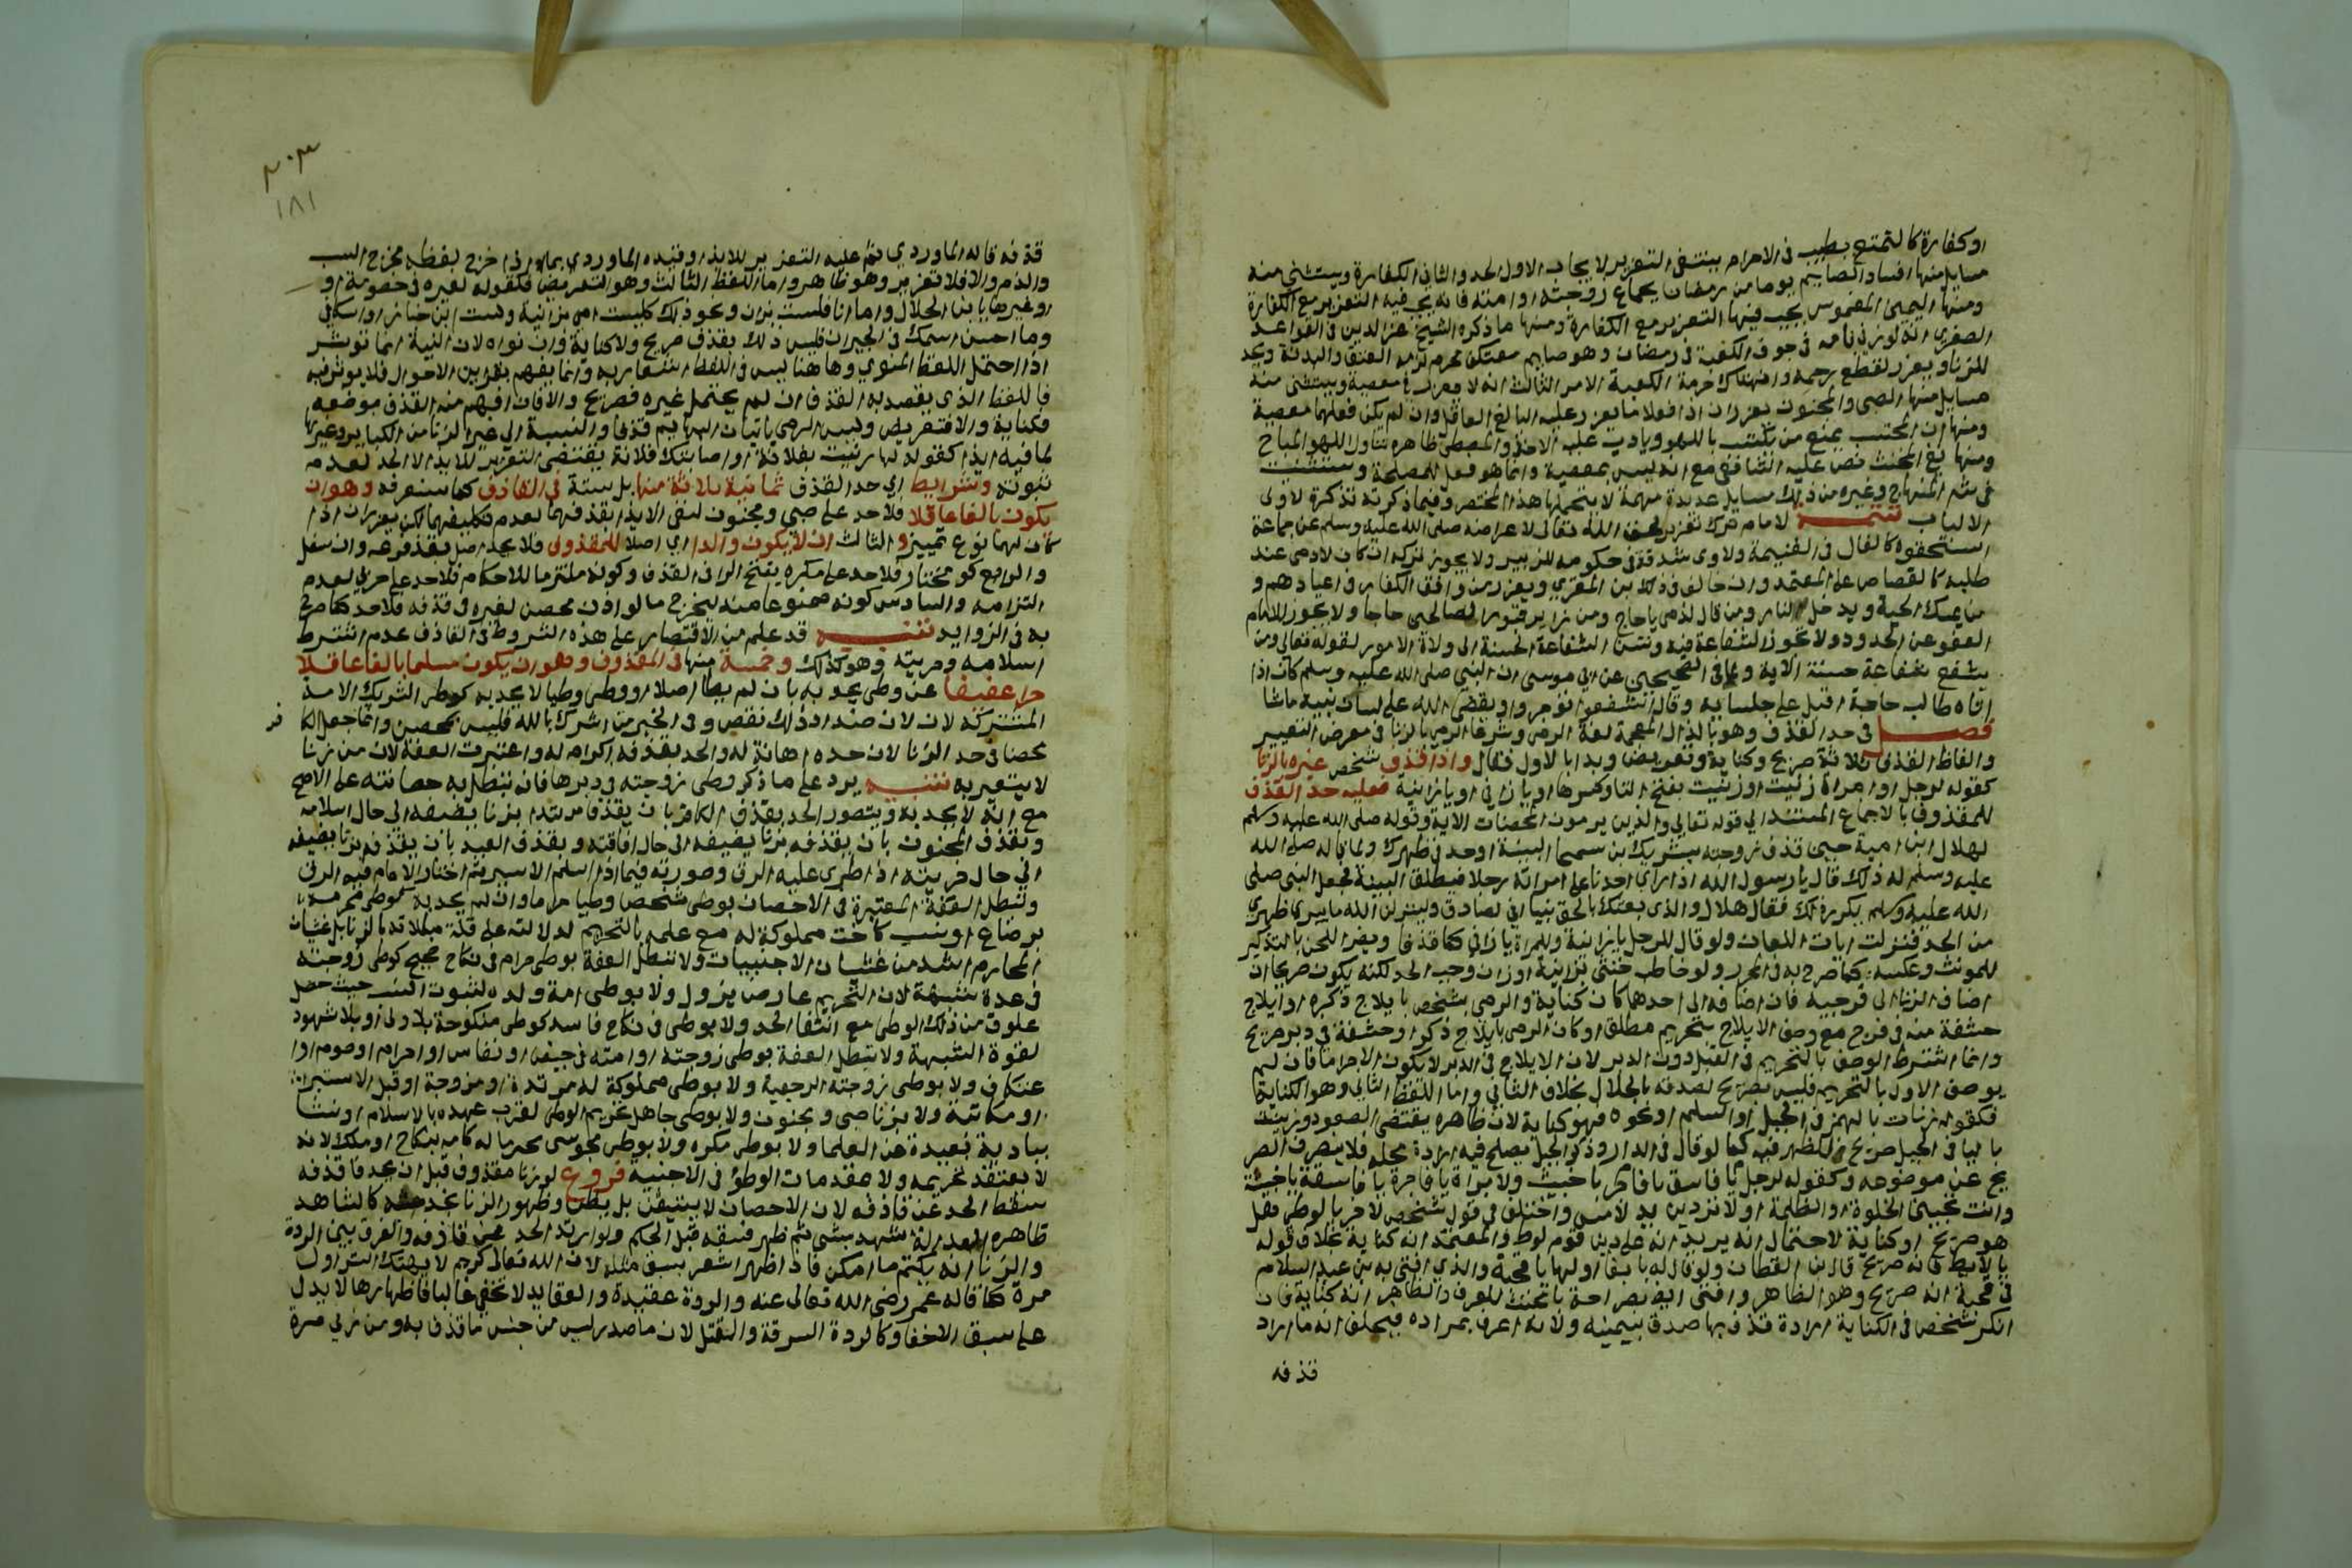 او كفارة كالتمتع بطيب في الاحرام ينتفى التعزير لايجاب الاول الحد والثاني الكفارة ويستثنى منه
مسايل منها افساد الصايم يوما من رمضان بجماع زوجته او امته فانه يجب فيه التعزير مع الكفارة
ومنها اليمين الغموس يجب فيها التعزير مع الكفارة ومنها ما ذكره الشيخ عز الدين في القواعد
الصغرى انه لو زنى بامه في جوف الكعبة في رمضان وهو صايم معتكف محرم لزمه العتق والبدنة ويحد
للزنا ويعزر لقطع رحمه وانتهاك حرمة الكعبة الامر الثالث انه لا يعزر في معصية ويستثنى منه
مسايل منها الصبي والمجنون يعزران اذا فعلا ما يعزر عليه البالغ العاقل وان لم يكن فعلهما معصية
ومنها ان المحتسب يمنع من يكتسب باللهو ويادب عليه الاخذ والمعطي ظاهره تناول اللهو المباح
ومنها نفي المخنث نص عليه الشافعي مع انه ليس بمعصية وانما هو فعل للمصلحة واستثنيت
في شرح المنهاج وغيره من ذلك مسايل عديدة مهمة لا يتحملها هذا المختصر وفيما ذكرته تذكرة لاولى
الالباب تتمة للامام ترك تعزير لحق الله تعالى لاعراضه صلى الله عليه وسلم عن جماعة
استحقوه كالغال في الغنيمة ولاوى شدقه في حكومه للزبير ولا يجوز تركه ان كان لادمي عند
طلبه كالقصاص على المعتمد وان خالف في ذلك بن المقري ويعزر من وافق الكفار في اعيادهم و
من يمسك الحية ويدخل النار ومن قال لذمي يا حاج ومن زاير قبور الصالحين حاجا ولا يجوز للامام
العفو عن الحدود ولا تجوز الشفاعة فيه وتسن الشفاعة الحسنة الى ولاة الامور لقوله تعالى ومن
يشفع شفاعة حسنة الاية ولما في الصحيحين عن ابي موسى ان النبي صلى الله عليه وسلم كان اذا
اتاه طالب حاجة اقبل على جلسايه وقال اشفعوا تؤجروا ويقضي الله على لسان نبيه ما شا
فصل في حد القذف وهو بالذال المعجمة لغة الرمي وشرعا الرمي بالزنا في معرض التعيير
والفاظ القذف ثلاثة صريح وكناية وتعريض وبدا بالاول فقال واذا قذف شخص غيره بالزنا
كقوله لرجل او امراة زنيت او زنيت بفتح التا وكسرها او يا زاني او يا زانية فعليه حد القذف
للمقذوف بالاجماع المستند الى قوله تعالى والذين يرمون المحصنات الاية وقوله صلى الله عليه وسلم
لهلال ابن امية حين قذف زوجته بشريك بن سحما البينة او حد في ظهرك ولما قاله صلى الله
عليه وسلم له ذلك قال يا رسول الله اذا راى احدنا على امراته رجلا فينطلق البينة فجعل النبي صلى
الله عليه وسلم يكرر ذلك فقال هلال والذي بعثك بالحق نبيا اني لصادق ولينزلن الله ما يبري ظهري
من الحد فنزلت ايات اللعان ولو قال للرجل يا زانية وللمراة يا زاني كان قذفا ولا يضر اللحن بالتذكير
للمونث وعكسه كما صرح به في المحرر ولو خاطب خنثى بزانية او زان وجب الحد لكنه يكون صريحا ان
اضاف الزنا الى فرجيه فان اضافه الى احدهما كان كناية والرمي لشخص بايلاج ذكره او ايلاج
حشفة منه في فرج مع وصف الايلاج بتحريم مطلق او كان الرمي بايلاج ذكر او حشفة في دبر صريح
وانما اشترط الوصف بالتحريم في القبل دون الدبر لان الايلاج في الدبر لا يكون الا حراما فان لم
يوصف الاول بالتحريم فليس بصريح لصدقه بالحلال بخلاف الثاني واما اللفظ الثاني وهو الكناية
فكقوله زنات بالهمز في الجبل او السلم او نحوه فهو كناية لان ظاهره يقتضي الصعود وزنيت
باليا في الجبل صريح للظهور فيه كما لو قال في الدار وذكر الجبل يصلح فيه ارادة محله فلا ينصرف الصر
يح عن موضوعه وكقوله لرجل يا فاسق يا فاجر يا خبيث ولامراة يا فاجرة يا فاسقة يا خبيثة
وانت تحبين الخلوة او الظلمة او لا تردين يد لامس واختلف في قول شخص لاخر يا لوطي هل
هو صريح او كناية لاحتمال انه يريد انه على دين قوم لوط والمعتمد انه كناية بخلاف قوله
يا لايط فانه صريح قال بن القطان ولو قال له يا بغا او لها يا قحبة والذي افتى به بن عبد السلام
في قحبة انه صريح وهو الظاهر وافتى ايضا بصراحة يا مخنث للعرف والظاهر انه كناية فان
انكر شخص في الكناية ارادة قذف بها صدق بيمينه لانه اعرف بمراده فيحلف انه ما اراد
قذفه
٢٠٣
١٨١
قذفه قاله الماوردي ثم عليه التعزير للايذا وقيده الماوردي بما اذا خرج لفظه مخرج السب
والذم والا فلا تعزير وهو ظاهر واما اللفظ الثالث وهو التعريض فكقوله لغيره في خصومة او
وغيرها يا بن الحلال واما انا فلست بزان ونحو ذلك كليست امي بزانية ولست ابن خباز او اسكافي
وما احسن اسمك في الجيران فليس ذلك بقذف صريح ولا كناية وان نواه لان النية انما توثر
اذا احتمل اللفظ المنوي وهاهنا ليس في اللفظ اشعار به وانما يفهم بقراين الاحوال فلا يوثر فيه
فاللفظ الذي يقصد به القذف ان لم يحتمل غيره فصريح والا فان افهم منه القذف بوضعه
فكناية والا فتعريض وليس الرمي باتيان البهايم قذفا والنسبة الى غير الزنا من الكباير وغيرها
لما فيه ايذا كقوله لها زنيت بفلانة او اصابتك فلانة يقتضي التعزير للايذا لا الحد لعدم
ثبوته وشرايط اي حد القذف ثمانية ثلاثة منها بل ستة في القاذف كما ستعرفه وهو ان
يكون بالغا عاقلا فلا حد على صبي ومجنون لنفي الايذا بقذفهما لعدم تكليفهما لكن يعزران اذا
كان لهما نوع تمييز والثالث ان لا يكون والدا اي اصلا للمقذوف فلا يحد اصل بقذف فرعه وان سفل
والرابع كونه مختار فلا حد على مكره بفتح الرا في القذف وكونه ملتزما للاحكام فلا حد على حربي لعدم
التزامه والسادس كونه ممنوعا منه ليخرج ما لو اذن محصن لغيره في قذفه فلا حد كما صرح
به في الزوايد تنبيه قد علم من الاقتصار على هذه الشروط في القاذف عدم اشتراط
اسلامه وحريته وهو كذلك وخمسة منها في المقذوف وهو ان يكون مسلما بالغا عاقلا
حرا عفيفا عن وطي يحد به بان لم يطا اصلا او وطي وطيا لا يحد به كوطي الشريك الامة
المشتركة لان ضد ذلك نقص وفي الخبر من اشرك بالله فليس بمحصن وانما جعل الكا
فر
محصنا في حد الزنا لان حده اهانة له والحد بقذفه اكرام له واعتبرت العفة لان من زنا
لا يتعير به تنبيه يرد على ما ذكر وطي زوجته في دبرها فانه تبطل به حصانته على الاصح
مع انه لا يحد به ويتصور الحد بقذف الكافر بان يقذف مرتدا بزنا يضيفه الى حال اسلامه
وبقذف المجنون بان يقذفه بزنا يضيفه الى حال افاقته وبقذف العبد بان يقذفه بزنا يضيفه
الى حال حريته اذا طرى عليه الرق وصورته فيما اذا اسلم الاسير ثم اختار الامام فيه الرق
وتبطل العفة المعتبرة في الاحصان بوطي شخص وطيا حراما وان لم يحد به كوطي محرمه
برضاع او نسب كاخت مملوكة له مع علمه بالتحريم لدلالته على قلة مبالاته بالزنا بل غشيان
المحارم اشد من غشيان الاجنبيات ولا تبطل العفة بوطي حرام في نكاح صحيح كوطي زوجته
في عدة شبهة لان التحريم عارض يزول ولا بوطي امة ولده لثبوت النسب حيث حصل
علوق من ذلك الوطي مع انتفا الحد ولا بوطي في نكاح فاسد كوطي منكوحة بلا ولي او بلا شهود
لقوة الشبهة ولا تبطل العفة بوطي زوجته او امته في حيض او نفاس او احرام او صوم او ا
عتكاف ولا بوطي زوجته الرجعية ولا بوطي مملوكة له مرتدة او مزوجة او قبل الاستبرا
او مكاتبة ولا بزنا صبي ومجنون ولا بوطي جاهل تحريم الوطي لقرب عهده بالاسلام او نشا
ببادية بعيدة عن العلما ولا بوطي مكره ولا بوطي مجوسي محرما له كامه بنكاح او ملك لانه
لا يعتقد تحريمه ولا مقدمات الوطؤ في الاجنبية فروع لو زنا مقذوف قبل ان يحد قاذفه
سقط الحد عن قاذفه لان الاحصان لا يتيقن بل يظن وظهور الزنا يخدشه كالشاهد
ظاهره العدالة شهد بشي ثم ظهر فسقه قبل الحكم ولو ارتد لم يحد عن قاذفه والفرق بين الردة
والزنا انه يكتم ما امكن فاذا ظهر اشعر بسبق مثله لان الله تعالى كريم لا يهتك الستر اول
مرة كما قاله عمر رضي الله تعالى عنه والردة عقيدة والعقايد لا تخفى غالبا فاظهارها لا يدل
على سبق الاخفا وكالردة السرقة والقتل لان ما صدر ليس من جنس ما قذف به ومن زنى مرة